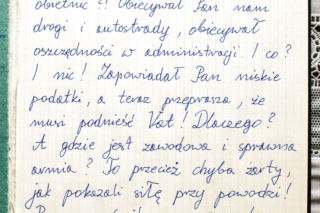 obietnic?! Obiecywał Pan nam
drogi i autostrady, obiecywał
oszczędności w administracji. I co?
I nic! Zapowiadał Pan niskie
podatki, a teraz przeprasza, że
musi podnieść Vat! Dlaczego?
A gdzie jest zawodowa i sprawna
armia? To przecież chyba żarty,
jak pokazali siłę przy powodzi!